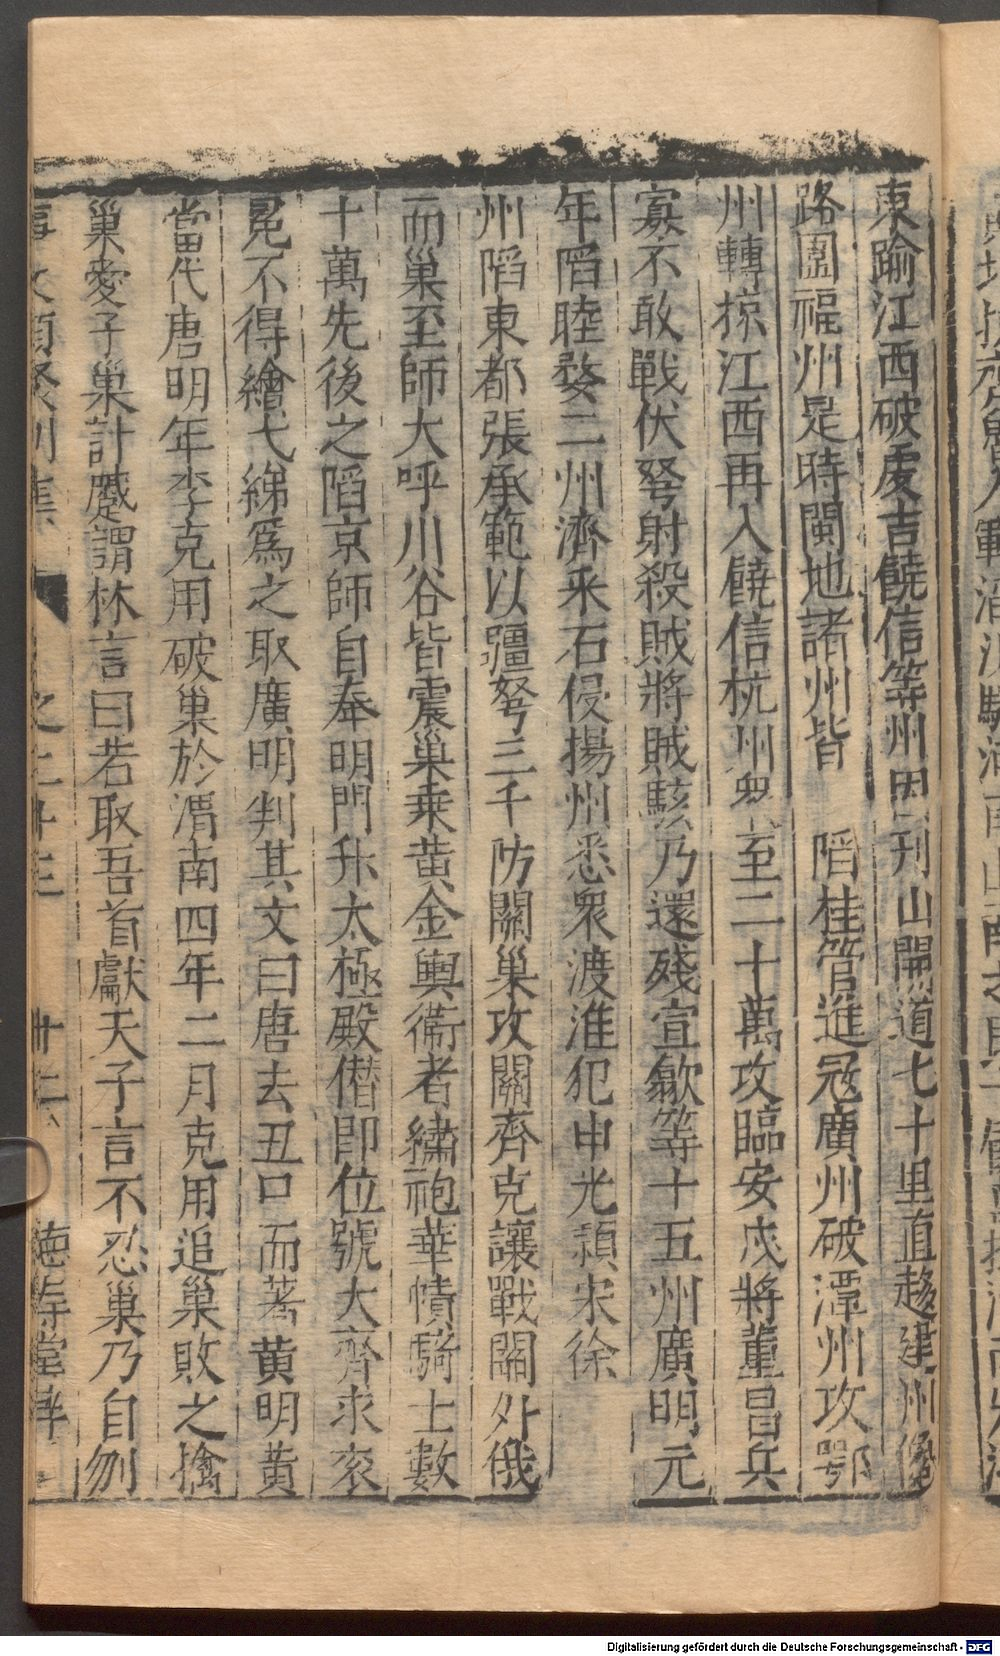 東踰江西破虔吉饒信等州因刊山開道七十里直趍建州
路圍福州是時閩地諸州皆陷桂管進冦廣州破潭州攻鄂
州轉掠江西再入饒信杭州衆至二十萬攻臨安戍將董昌兵
寡不敢戰伏弩射殺賊將賊駭乃還殘宣歙等十五州廣明元
年陷睦婺二州濟采石侵揚州悉衆渡淮犯申光潁宋徐
州陷東都張承範以疆弩三千防關巢攻關齊克讓戰關外俄
而巢至師大呼川谷皆震巢乗黄金輿衛者繡袍華幘騎士數
十萬先後之陷京師自奉明門升太極殿僣即位號大齊求衮
冕不得繪弋綈爲之取廣明判其文曰唐去丑口而著黄明黄
當代唐明年李克用破巢於渭南四年二月克用追巢敗之擒
巢愛子巢計蹙謂林言曰若取吾首獻天子言不忍巢乃自刎
事文類聚別集 之二十三 德壽堂梓
Digitalisierung gefördert durch die Deutsche Forschungsgemeinschaft - DFG